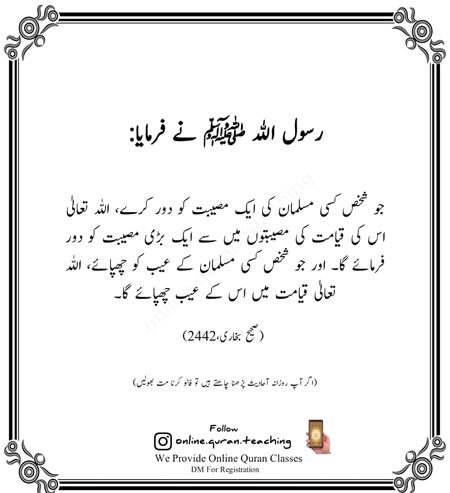 رسول اللہ ﷺ نے فرمایا:
جو شخص کسی مسلمان کی ایک مصیبت کو دور کرے، اللہ تعالیٰ
اس کی قیامت کی مصیبتوں میں سے ایک بڑی مصیبت کو دور
فرمائے گا۔ اور جو شخص کسی مسلمان کے عیب کو چھپائے، اللہ
تعالیٰ قیامت میں اس کے عیب چھپائے گا۔
(صحیح بخاری،2442)
(اگر آپ روزانہ آحادیث پڑھنا چاھتے ہیں تو فالو کرنا مت بھولیں)
Follow
online.quran.teaching
We Provide Online Quran Classes
DM For Registration